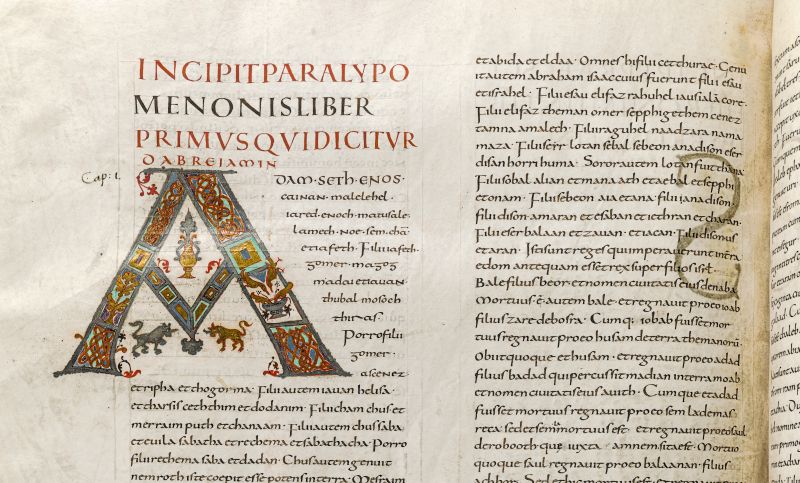 INCIPITPARALYPO
MENONISLIBER
PRIMUSQUIDICITUR
DABREJAMIN
Cap. 1.
ADAM·SETH·ENOS·
cainan·malelehel
iared·enoch·matusale·
lamech·noe·sem·chā·
etiafeth·Filiiiafeth·
gomer·magog
madaietiauan·
thubal·mosoch
thiras·
Porrofilii
gomer·
ascenez·
etripha·etthogorma·Filiiautem iauan helisa·
etcharsis cethim et dodanim·Filiicham chus et
merraim puth etchanaam·Filiiautem chus saba·
eteuila sabacha etrechema etsabathacha·Porro
filii rechema saba etdadan·Chus autem genuit
nemroth iste coepit esse potens in terra·Mesraim
et abida et eldaa·Omnes hi filii cetthurae·Genu
it autem abraham isaac cuius fuerunt filii esau
et israhel·Filii esau elifaz rahuhel iaus ialā core·
Filii elifaz theman omer sepphi gethem cenez
tamna amalech·Filii raguhel naad zara nama
maza·Filii seir lotan sobal sebeon ana dison eser
disan horri huma·Soror autem lotan fuit thana
Filii sobal alian etmana ath et aebal et sepphi
et onam·Filii sebeon aia et ana·filii ana dison·
filii dison amaran et eseban et iethran et charan·
Filii eser balaan et zauan·et iacan·Filii dison us
et aran·Isti sunt reges qui imperauerunt in terra
edom antequam esset rex super filios isrl·
Bale filius beor et nomen ciuitatis eius denaba
Mortuus ē autem bale·et regnauit pro eo iobab
filius zare de bosra·Cumq; iobab fuisset mor
tuus regnauit pro eo husam de terra themanorū·
Obiit quoque et husam·et regnauit pro eo adad
filius badad qui percussit madian in terra moab
et nomen ciuitatis eius auith·Cumque et adad
fuisset mortuus regnauit pro eo semla de mas
reca·sed et semla mortuus est·et regnauit pro eo saul
de rooboth quae iuxta amnem sita est·Mortuo
quoque saul regnauit pro eo balaanan·filius